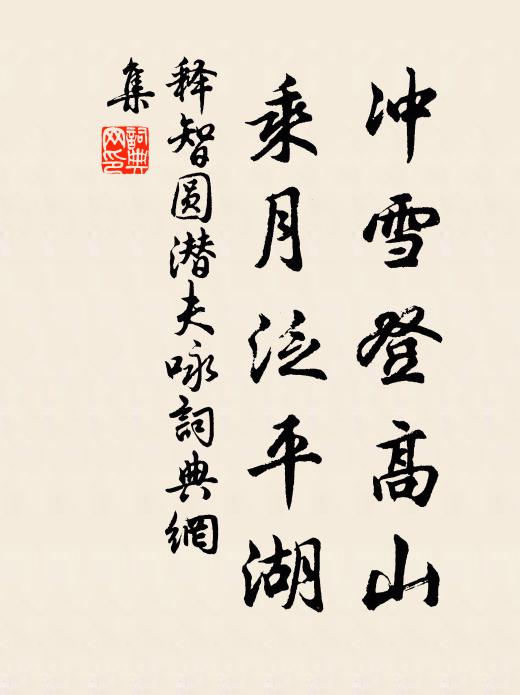 冲雪登高山
乘月泛平湖
释智圆潜夫咏詞典網
集
詞典网印